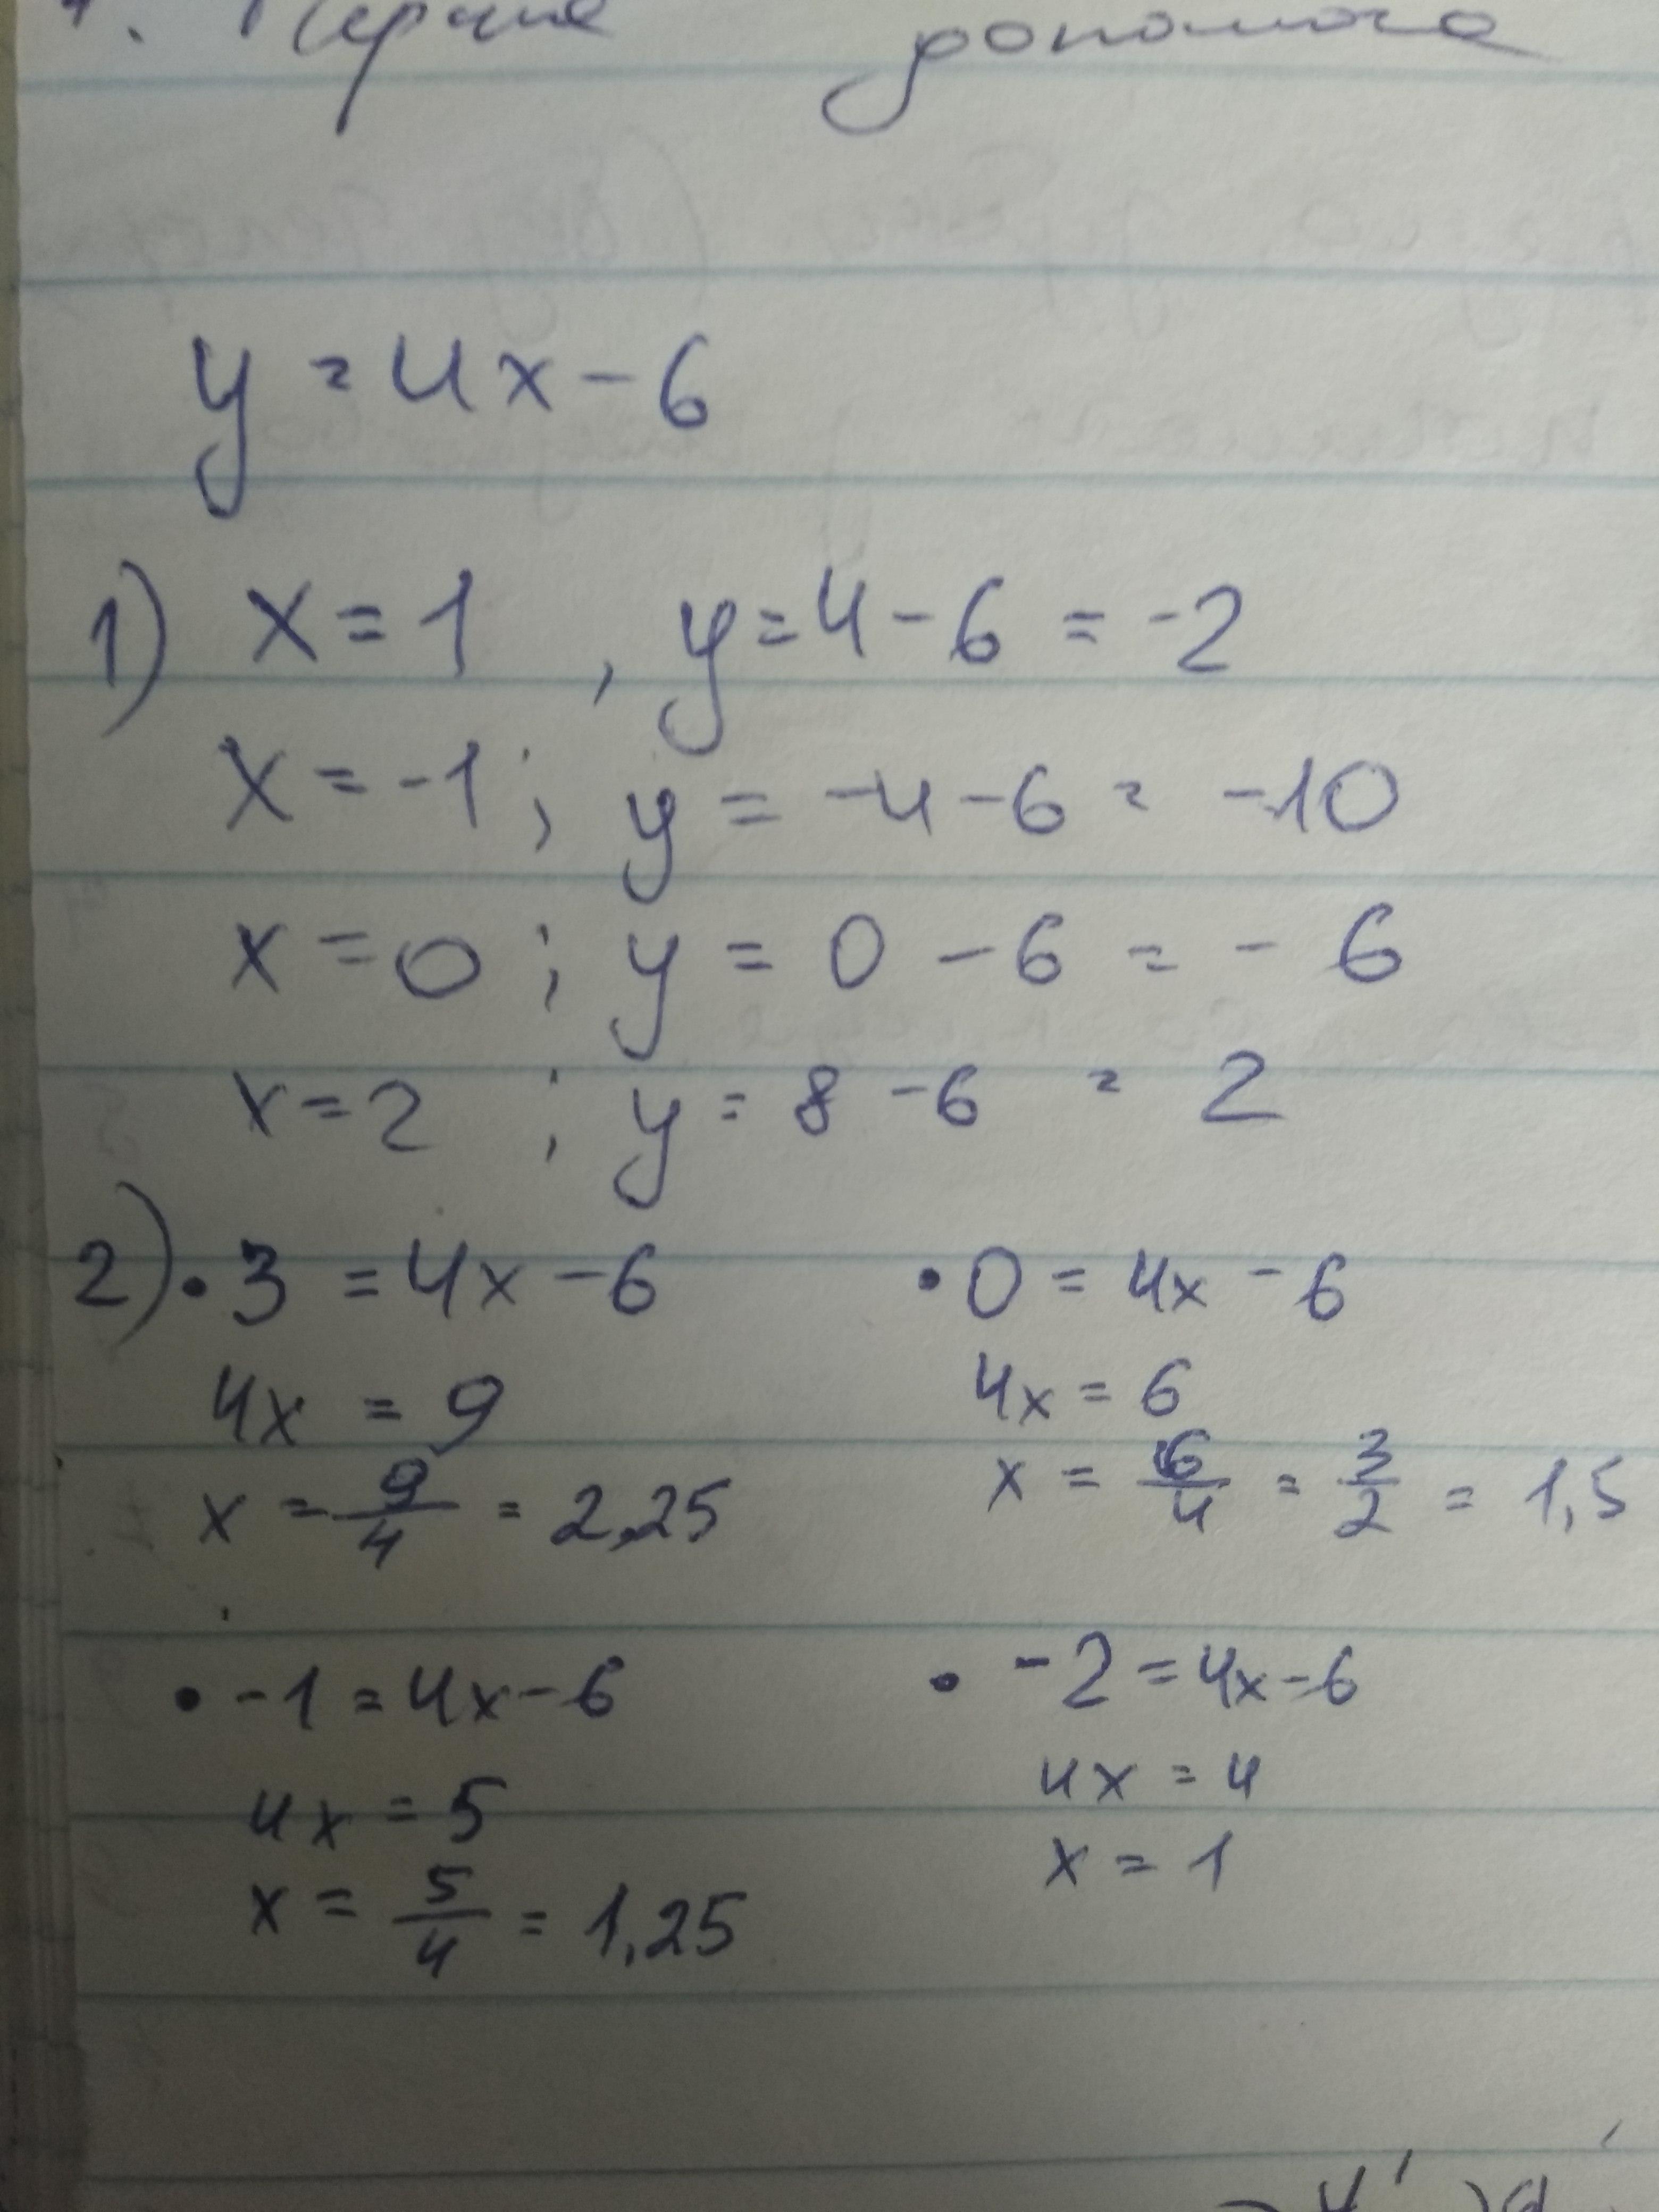 1. Перша допомога
y = 4x - 6
1) x = 1 , y = 4 - 6 = -2
x = -1 ; y = -4 - 6 = -10
x = 0 ; y = 0 - 6 = - 6
x = 2 ; y = 8 - 6 = 2
2) • 3 = 4x - 6 • 0 = 4x - 6
4x = 9 4x = 6
x = 9/4 = 2,25 x = 6/4 = 3/2 = 1,5
• -1 = 4x - 6 • -2 = 4x - 6
4x = 5 4x = 4
x = 5/4 = 1,25 x = 1